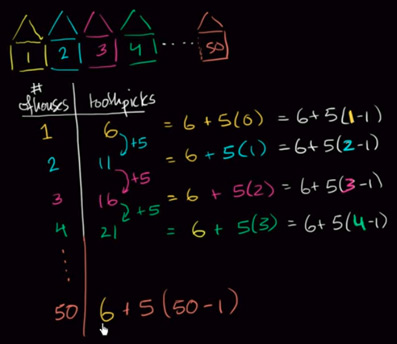 1 2 3 4 ..... 50
# of houses toothpicks
1 6 = 6 + 5(0) = 6 + 5(1-1)
+5
2 11 = 6 + 5(1) = 6 + 5(2-1)
+5
3 16 = 6 + 5(2) = 6 + 5(3-1)
+5
4 21 = 6 + 5(3) = 6 + 5(4-1)
50 6 + 5(50-1)